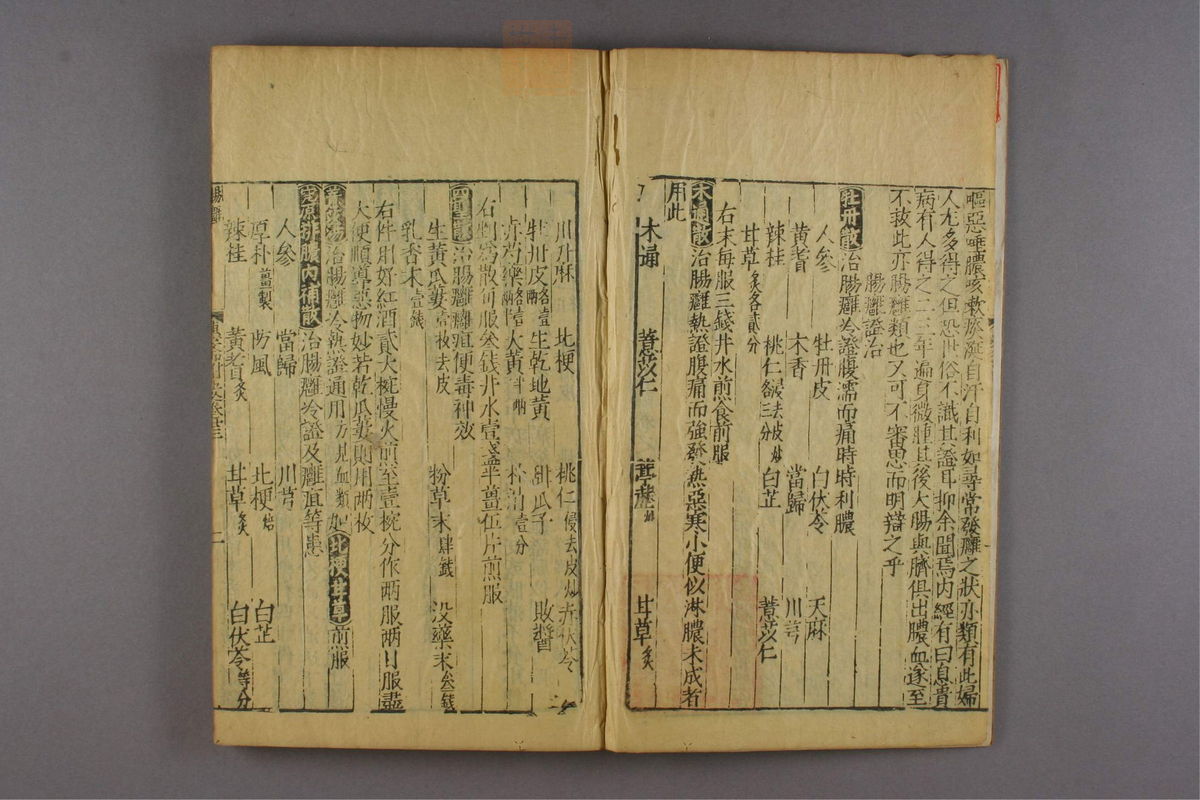 嘔惡唾膿咳嗽瘀涎自汗自利如尋常發癰之狀亦類有此婦
人尤多得之但恐世俗不識其證耳抑余聞焉內經有曰息賁
病有人得之二三年遍身微腫其後大腸與臍俱出膿血遂至
不救此亦腸癰類也又可不審思而明辯之乎
腸癰證治
牡丹散治腸癰冷證腹濡而痛時時利膿
人參 牡丹皮 白伏苓 天麻
黃耆 木香 當歸 川芎
辣桂 桃仁 去皮炒 白芷 薏苡仁
甘草 炙各貳分
右末每服三錢井水煎食前服
木通散治腸癰熱證腹痛而強發熱惡寒小便似淋膿未成者
用此
木通 薏苡仁 葶藶 炒 甘草 炙
川升麻 北梗 桃仁 浸去皮炒 赤伏苓
牡丹皮 各壹兩 生乾地黃 甜瓜子 敗醬
赤芍藥 大黃 半兩 朴消 壹分
右剉為散每服叄錢井水壹盞半薑伍片煎服
四聖散治腸癰癰疽便毒神效
生黃瓜蔞 壹枚去皮 粉草末 肆錢 沒藥末 叄錢
乳香末 壹錢
右件用好紅酒貳大椀慢火煎至壹椀分作兩服兩日服盡
大便順導惡物妙若乾瓜蔞則用兩枚
治腸癰冷熱證通用方見血類加北梗甘草煎服
排膿內補散治腸癰冷證及癰疽等患
人參 當歸 川芎
厚朴 薑製 防風 北梗 焙 白芷
辣桂 黃耆 炙 甘草 炙 白伏苓 等分
腸癰